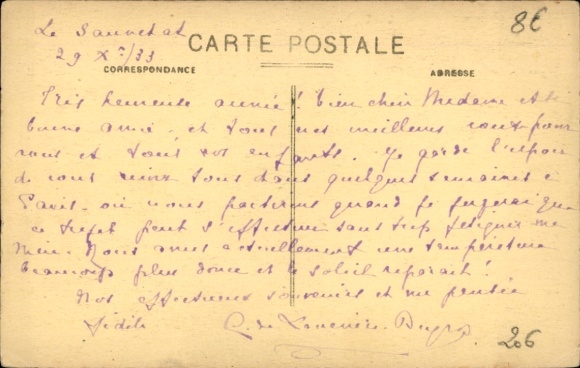 Le Sauvetat
29 Xbre/33
8€
CARTE POSTALE
CORRESPONDANCE
ADRESSE
Très heureuse année! bien chère Madame et
bonne amie, et tous mes meilleurs vœux pour
vous et tous vos enfants. Je garde l'espoir
de vous revoir tous dans quelques semaines à
Paris où nous partirons quand je jugerai que
ce trajet peut s'effectuer sans trop fatiguer ma
Nous avons actuellement une température
beaucoup plus douce et le soleil reparait!
Nos affectueux souvenirs et ma pensée
fidèle
206